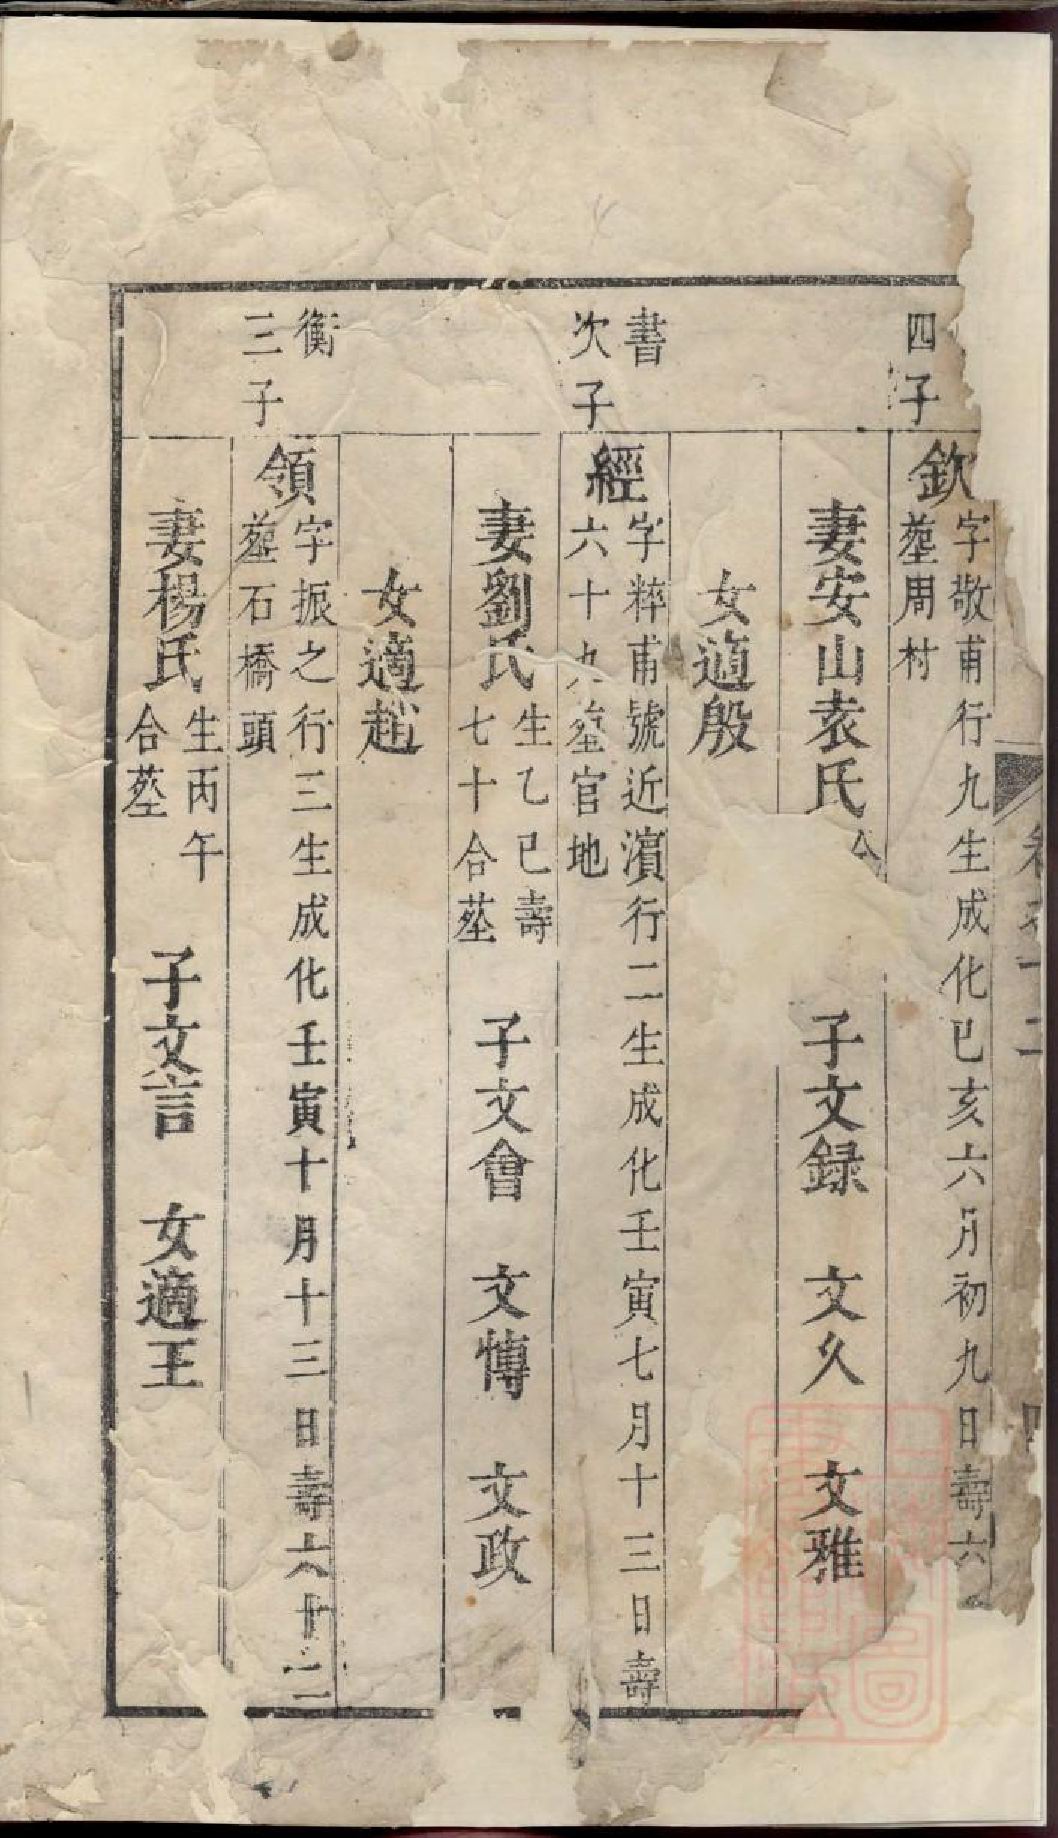 四子
欽
字敬甫行九生成化己亥六月初九日壽六
塟周村
妻安山袁氏
子文録 文久 文雅
女適殷
書
次子
經
字粹甫號近濵行二生成化壬寅七月十三日壽
六十九塟官地
妻劉氏
生乙巳壽
七十合塟
子文會 文愽 文政
女適趙
衡
三子
領
字振之行三生成化壬寅十月十三日壽六十二
塟石橋頭
妻楊氏
生丙午
合塟
子文言 女適王